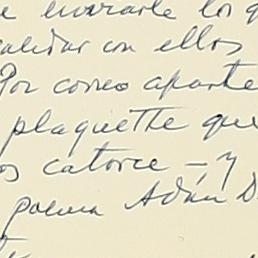 enviarle los q
validar con ellos
Por correo aparte
plaquette que
os catorce – y
poema Adán D